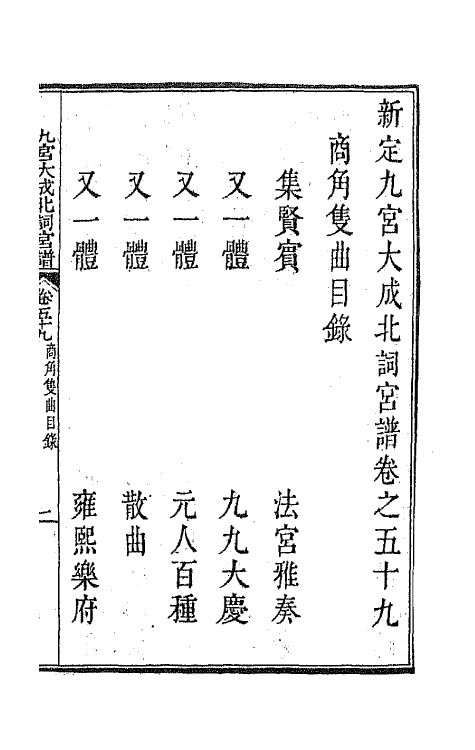 新定九宮大成北詞宮譜卷之五十九
商角隻曲目錄
集賢賓 法宮雅奏
又一體 九九大慶
又一體 元人百種
又一體 散曲
又一體 雍熙樂府
九宮大成北詞宮譜 卷五十九 商角隻曲目錄 二